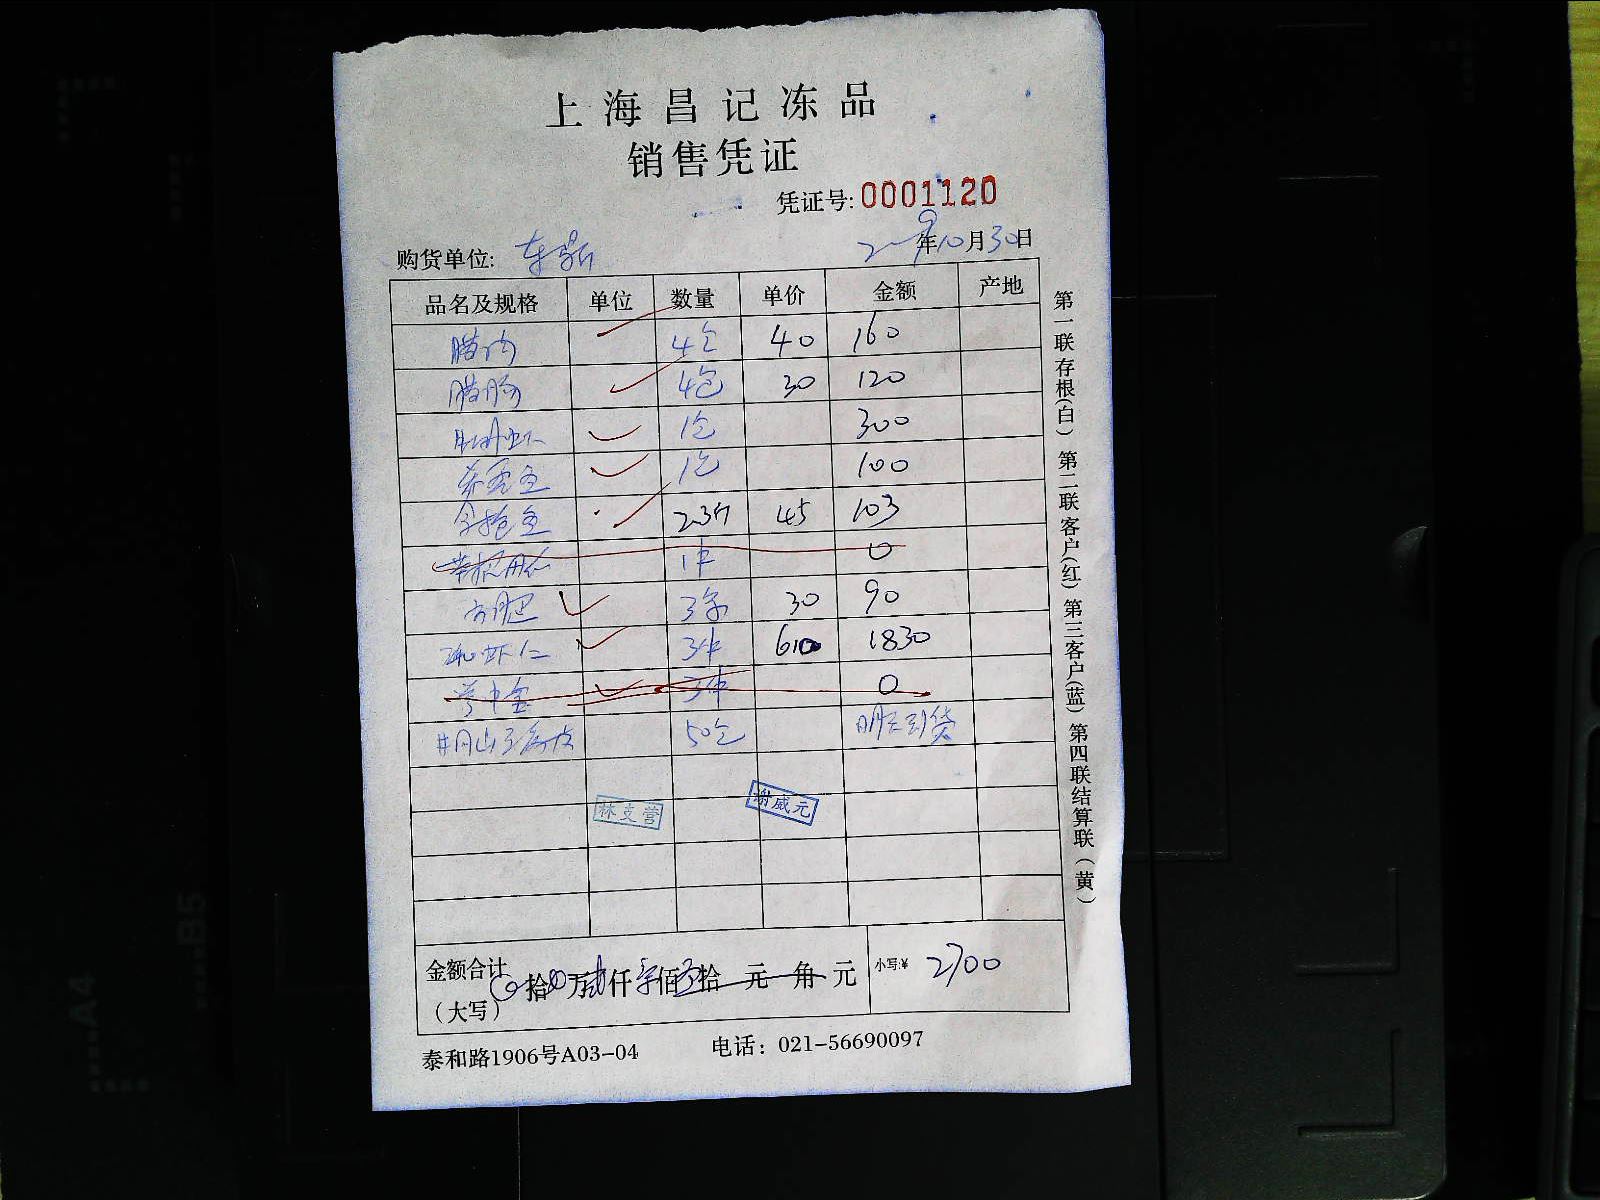 上海昌记冻品
销售凭证
凭证号: 0001120
购货单位: 东鼎 年10月30日
品名及规格 单位 数量 单价 金额 产地
腊肉 4包 40 160
腊肠 4包 30 120
1包 300
1包 100
2.3斤 45 103
1件 0
3条 30 90
虾仁 3件 610 1830
3件 0
50包 明天到货
林支营 谢威元
金额合计 拾 万 仟 佰 拾 元 角 元 小写:¥ 2700
(大写)
泰和路1906号A03-04 电话: 021-56690097
第一联存根(白) 第二联客户(红) 第三客户(蓝) 第四联结算联(黄)
A4
B5